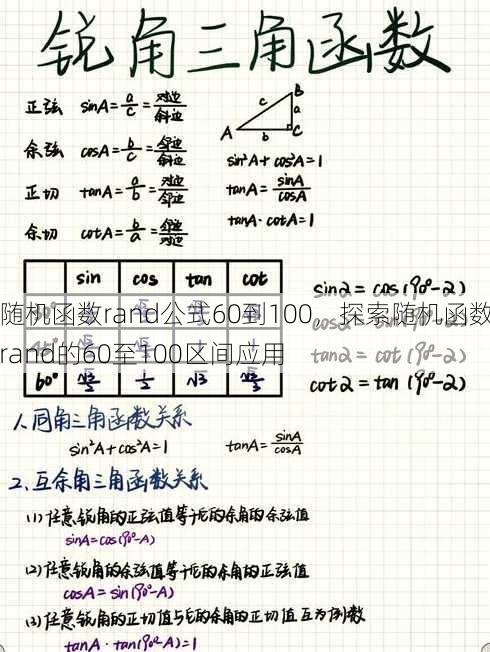 锐角三角函数
正弦 sinA=a/c=对边/斜边
余弦 cosA=b/c=邻边/斜边
正切 tanA=a/b=对边/邻边
余切 cotA=b/a=邻边/对边
A B C a b c
sin²A+cos²A=1
tanA=sinA/cosA
tanA·cotA=1
sin cos tan cot
随机函数rand公式60到100，探索随机函数
rand的60至100区间应用
60° √3/2 1/2 √3 √3/3
sinα=cos(90°-α)
tanα=cot(90°-α)
cotα=tan(90°-α)
1.同角三角函数关系
sin²A+cos²A=1 tanA=sinA/cosA
2.互余角三角函数关系
(1)任意锐角的正弦值等于它的余角的余弦值
sinA=cos(90°-A)
(2)任意锐角的余弦值等于它的余角的正弦值
cosA=sin(90°-A)
(3)任意锐角的正切值与它的余角的正切值互为倒数
tanA·tan(90°-A)=1